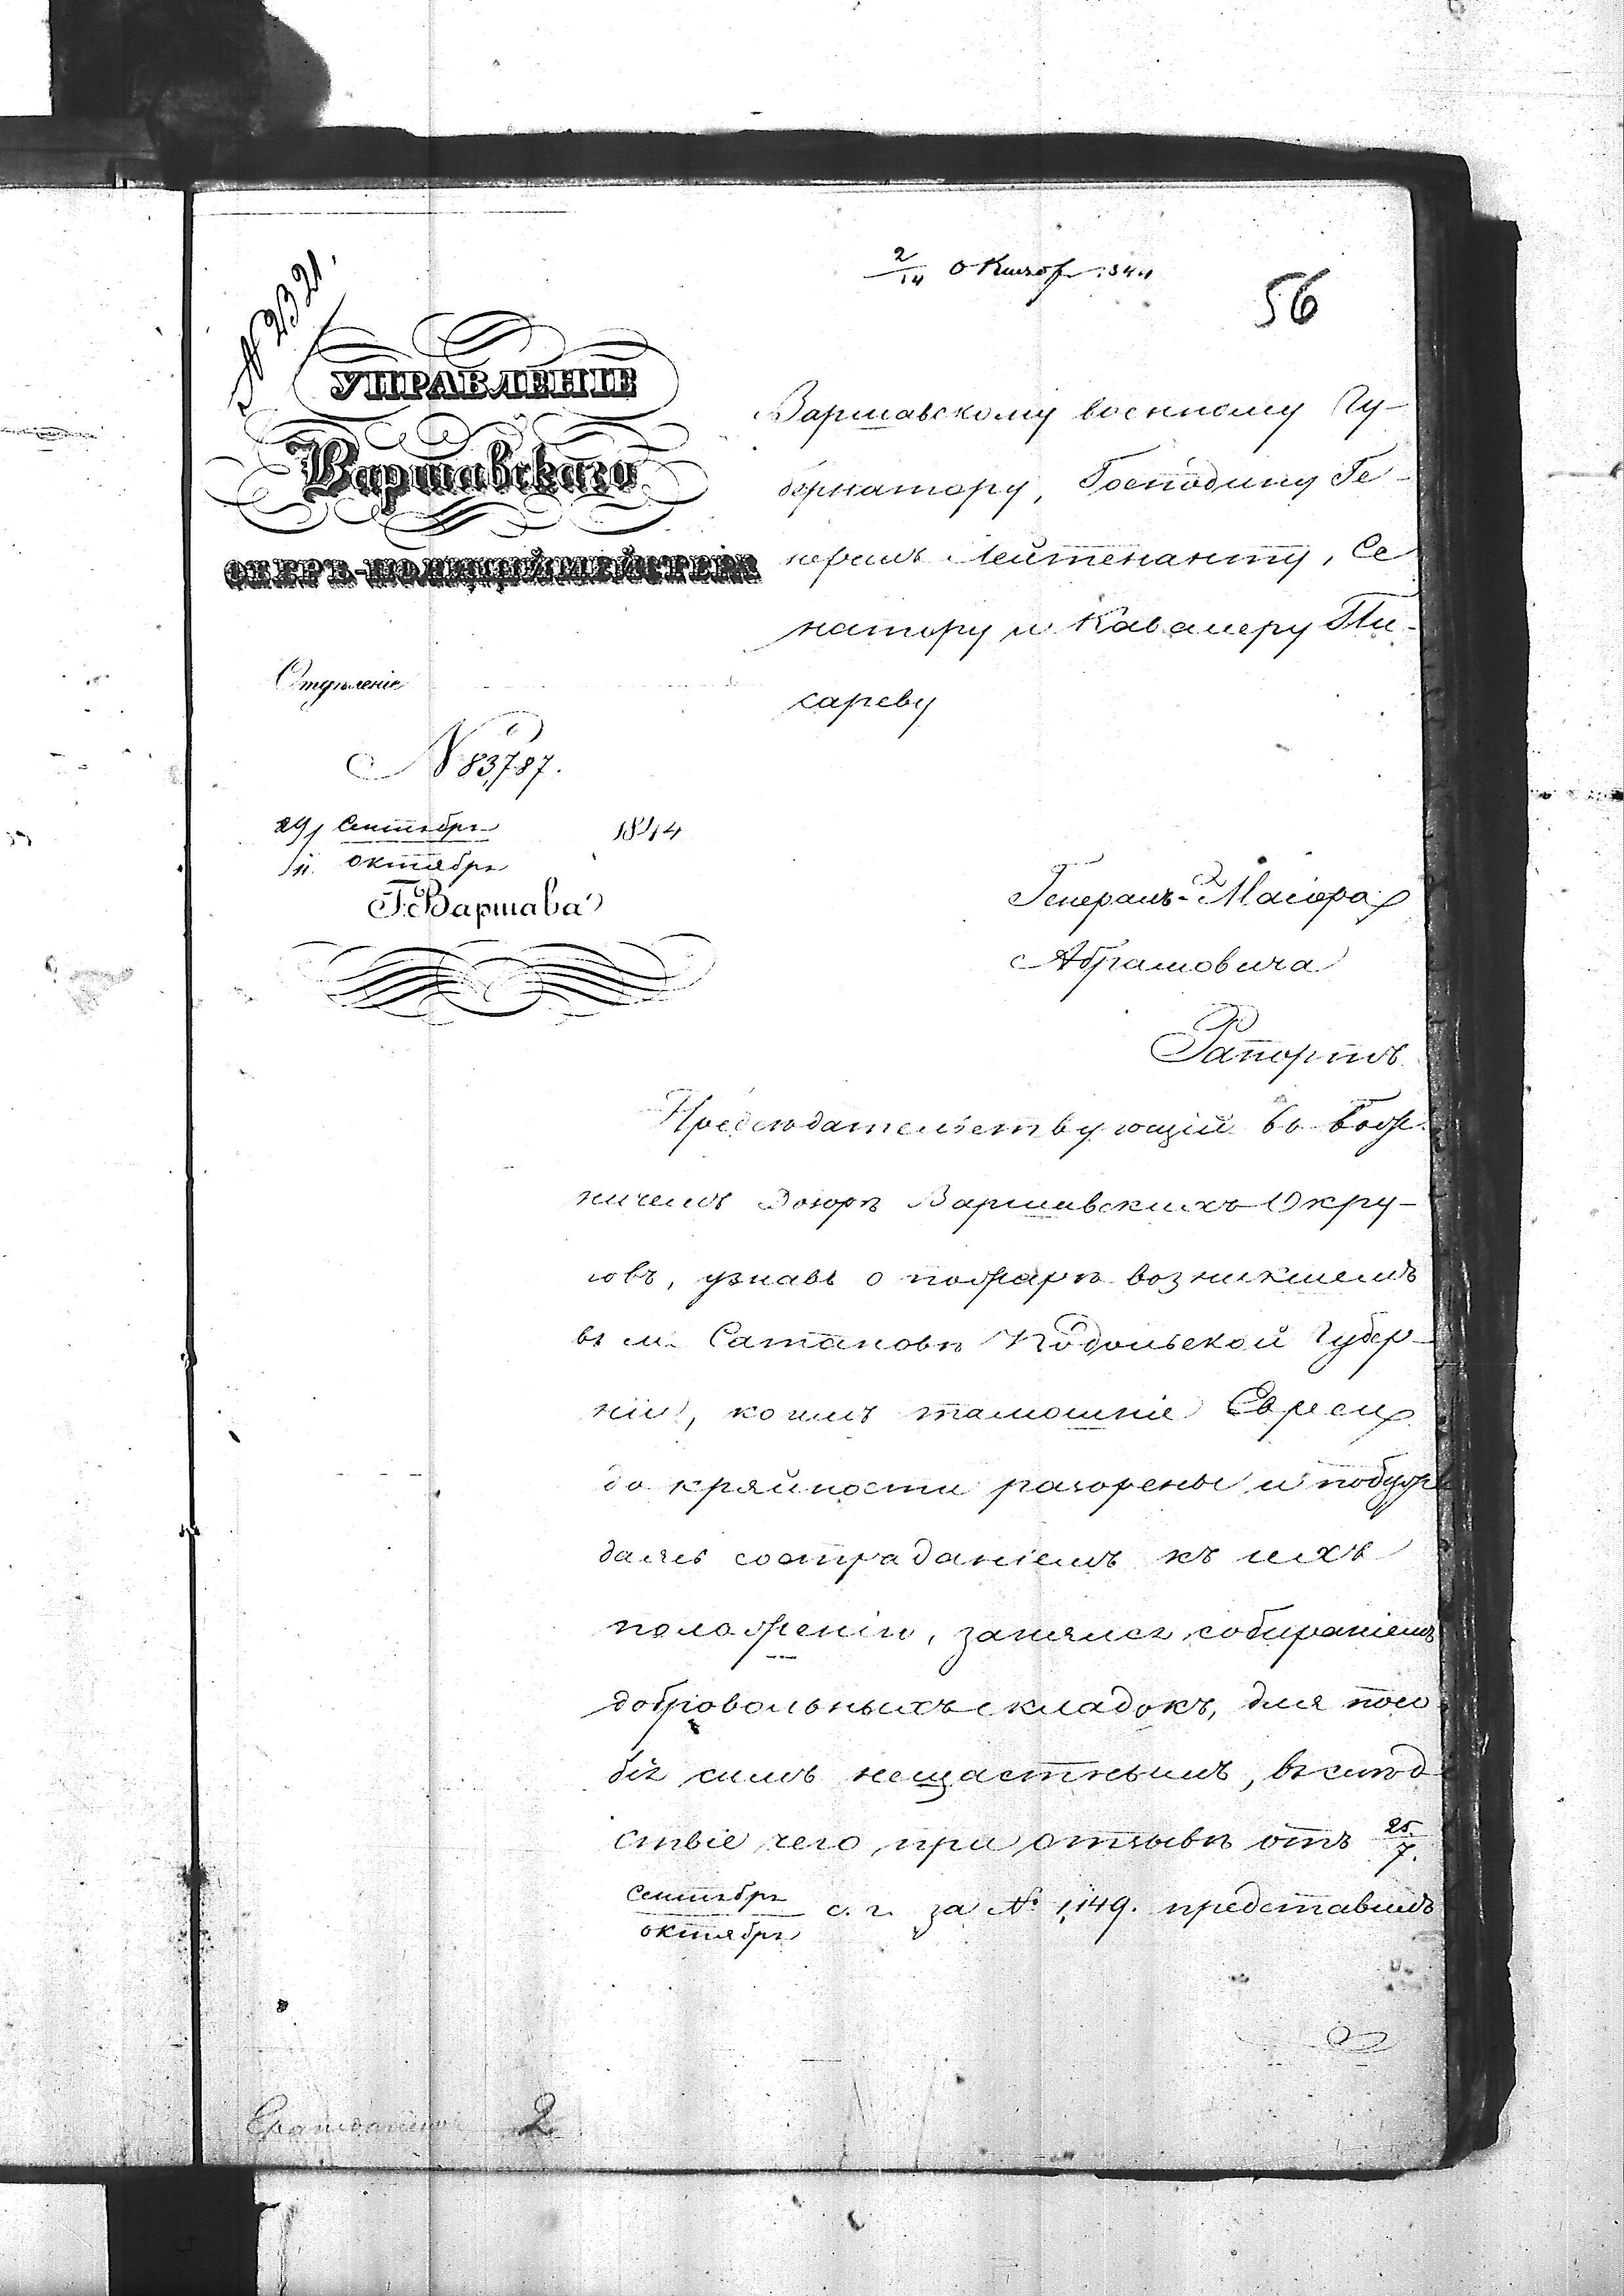 2/14 Октяб 1844
56
№ 2321.
УПРАВЛЕНІЕ
Варшавскаго
ОБЕРЪ-ПОЛИЦІЙМЕЙСТЕРА
Отдѣленіе
№ 83,787.
29/11 Сентябрь/Октябрь 1844
Г. Варшава
Варшавскому военному Гу-
бернатору, Господину Ге-
нералъ Лейтенанту, Се
натору и Кавалеру Пи-
сареву
Генералъ-Маіора
Абрамовича
Рапортъ
Предсѣдательствующій въ Бож
ничемъ Дозорѣ Варшавскихъ Окру-
говъ, узнавъ о пожарѣ возникшемъ
въ м. Сатановѣ Подольской Губер-
ніи, коимъ тамошніе Евреи
до крайности разорены и побуж
даясь состраданіемъ къ ихъ
положенію, занялся собираніемъ
добровольныхъ складокъ, для посо
бія симъ нещастнымъ, въ слѣд
ствіе чего при отзывѣ отъ 25/7.
Сентябрь/Октябрь с. г. за № 1,149. представилъ
2